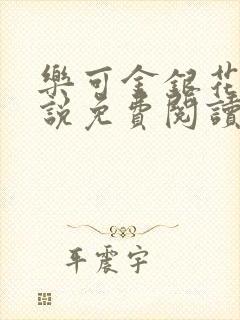 樂可金銀花
說免費閱讀
平震宇